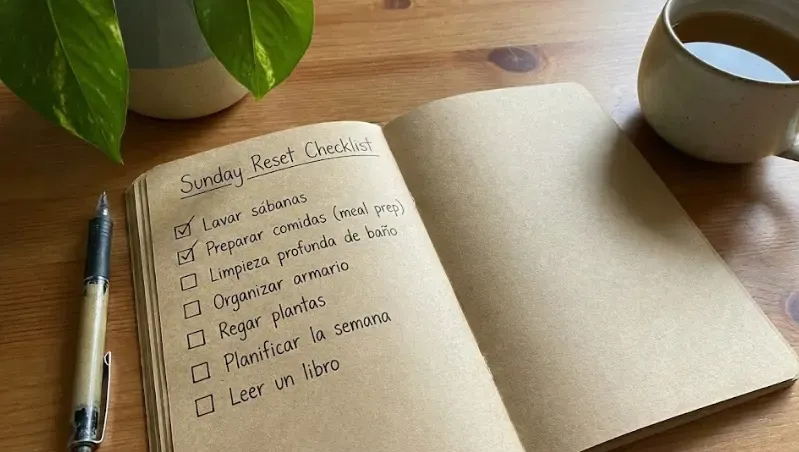 Sunday Reset Checklist
Lavar sábanas
Preparar comidas (meal prep)
Limpieza profunda de baño
Organizar armario
Regar plantas
Planificar la semana
Leer un libro